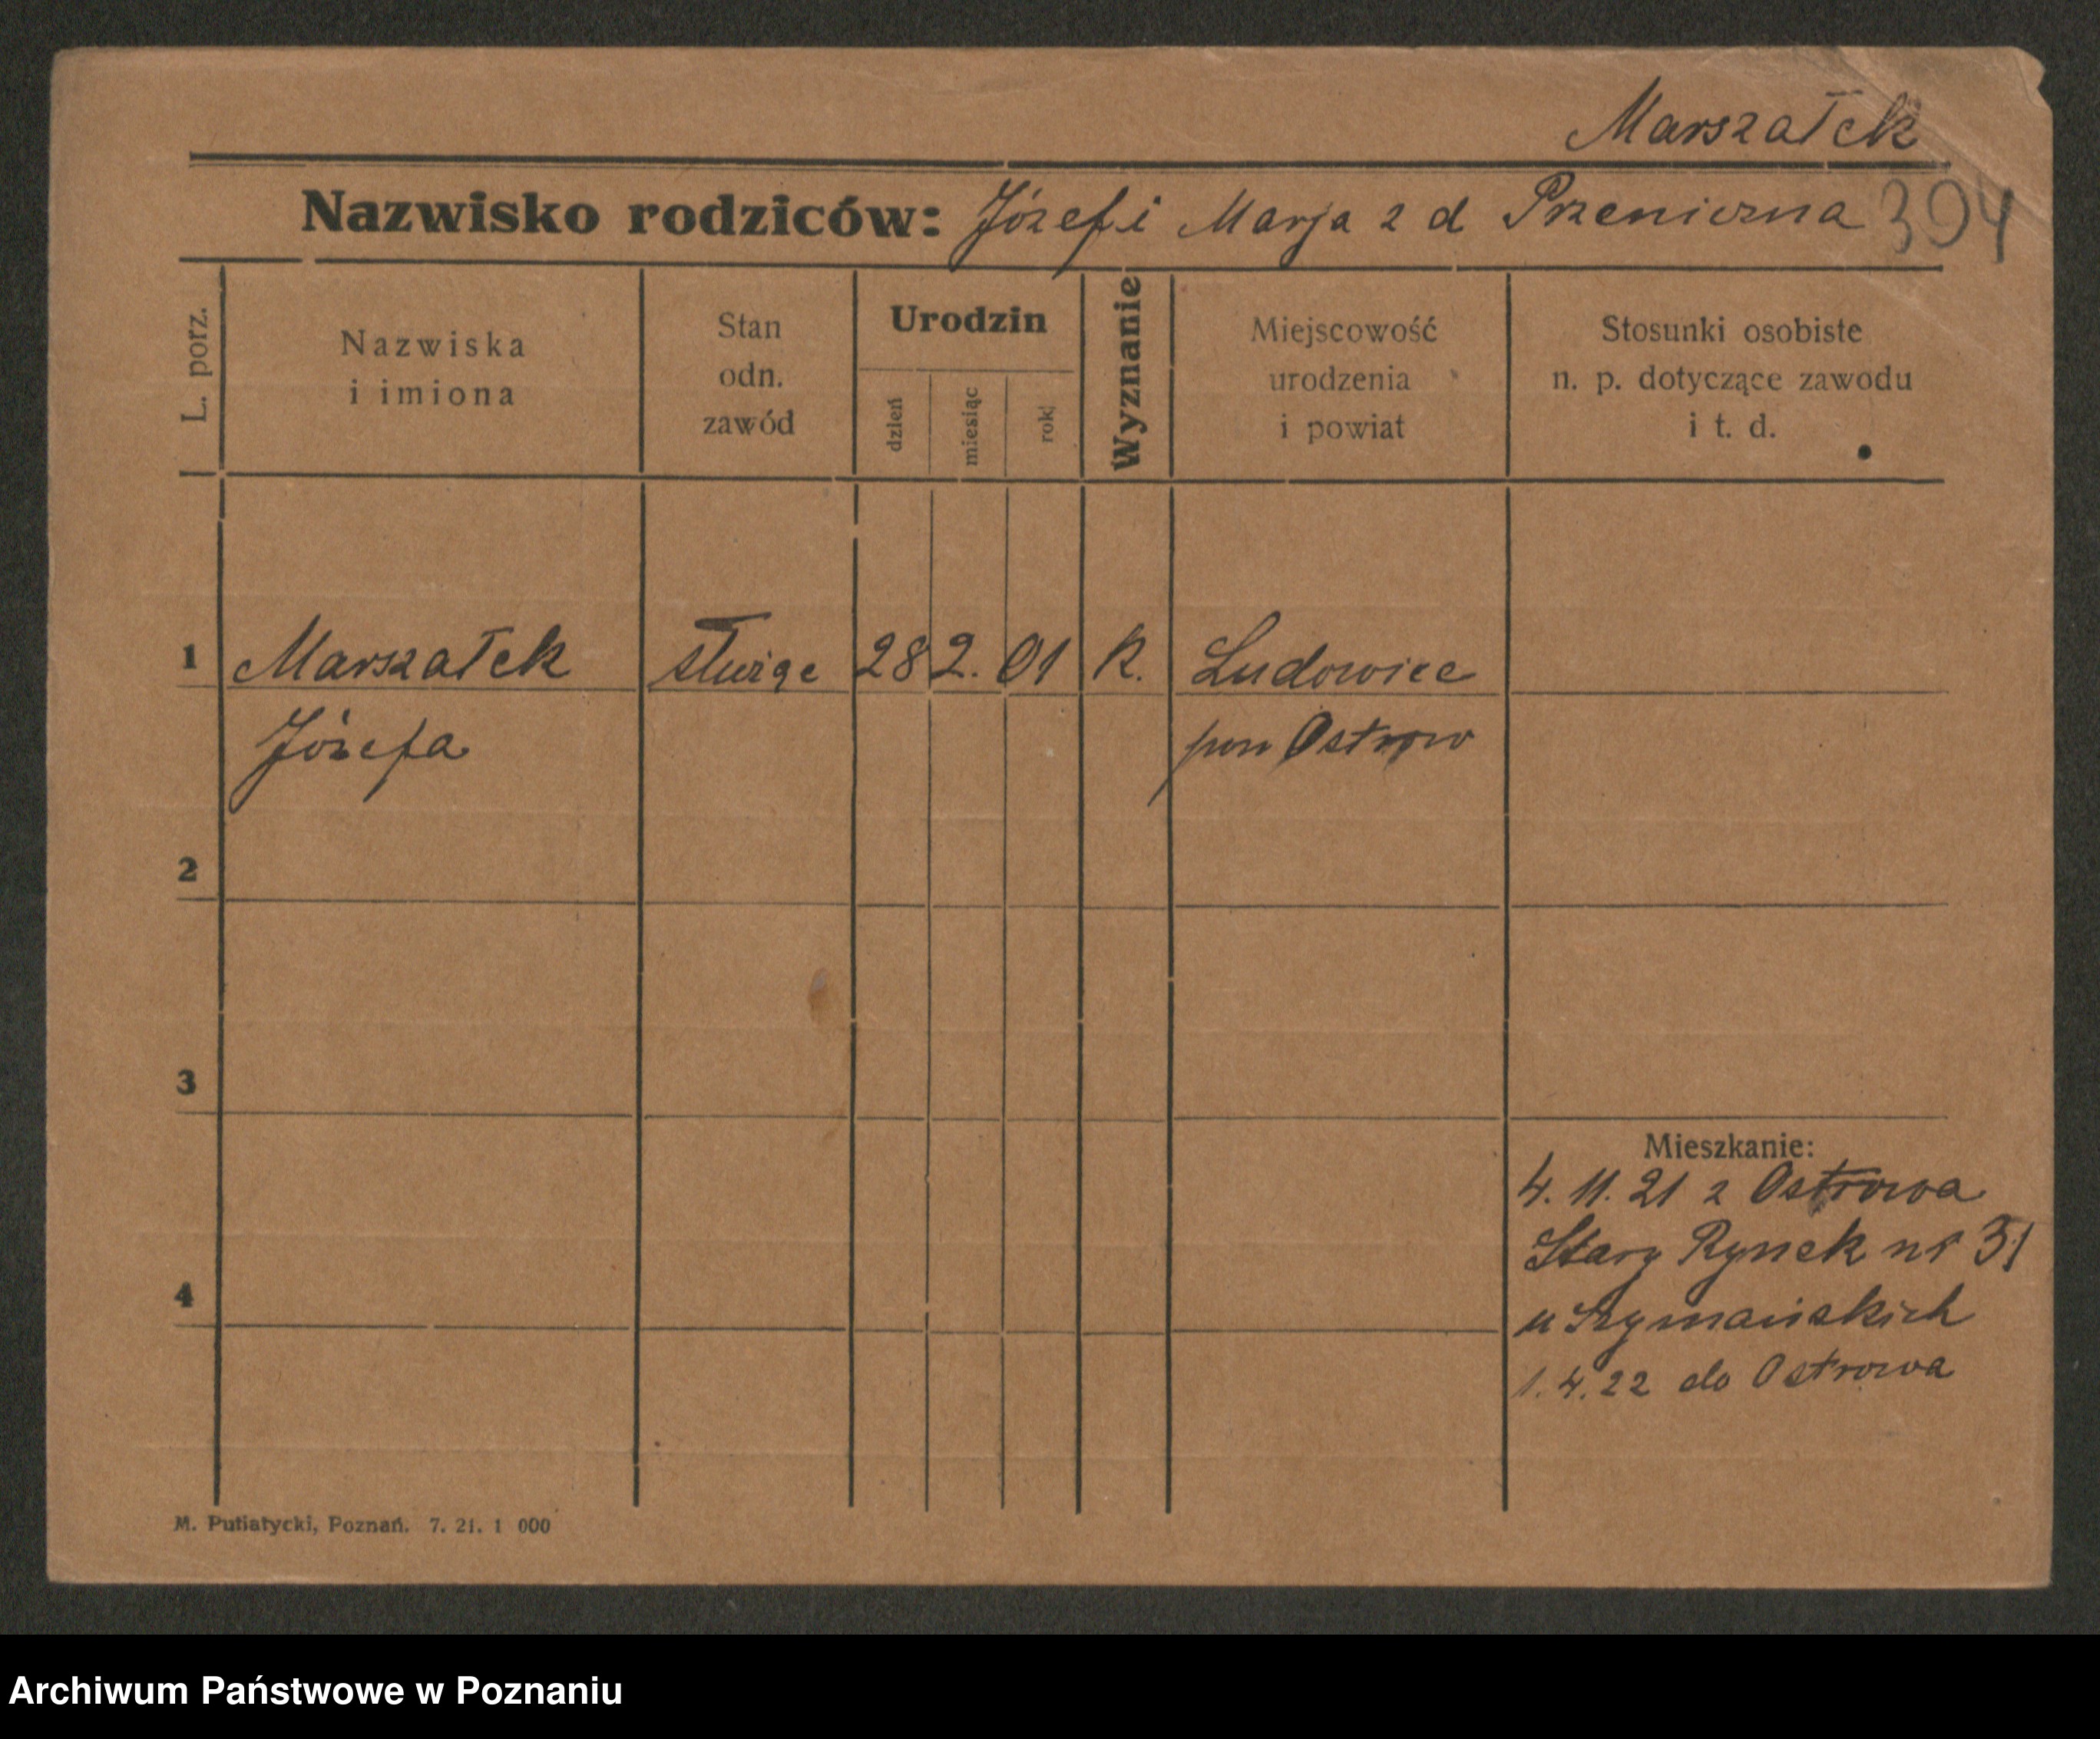 Marszałek
Nazwisko rodziców: Józef i Marja z d Przenierna 394
L. porz.
Nazwiska
i imiona
Stan
odn.
zawód
Urodzin
dzień
miesiąc
rok
Wyznanie
Miejscowość
urodzenia
i powiat
Stosunki osobiste
n. p. dotyczące zawodu
i t. d.
1 Marszałek służąc 28 2. 01 K. Ludowice
Józefa pow Ostrow
2
3
Mieszkanie:
4. 11. 21 z Ostrowa
Stary Rynek nr 31
4
u Szymańskich
1. 4. 22 do Ostrowa
M. Putiatycki, Poznań. 7. 21. 1 000
Archiwum Państwowe w Poznaniu